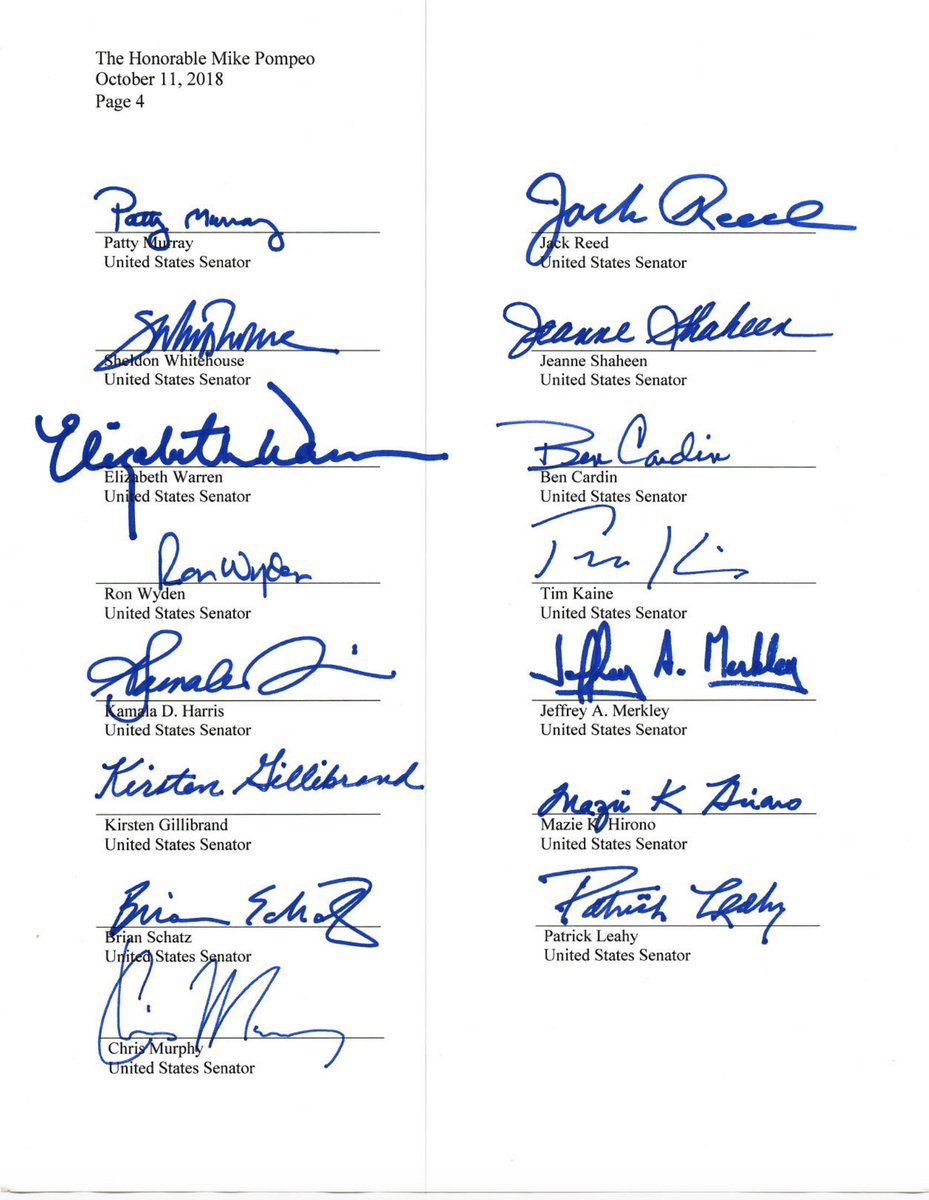 The Honorable Mike Pompeo
October 11, 2018
Page 4
Patty Murray
Patty Murray
United States Senator
Jack Reed
Jack Reed
United States Senator
SWhitehouse
Sheldon Whitehouse
United States Senator
Jeanne Shaheen
Jeanne Shaheen
United States Senator
Elizabeth Warren
Elizabeth Warren
United States Senator
Ben Cardin
Ben Cardin
United States Senator
Ron Wyden
Ron Wyden
United States Senator
Tim Kaine
Tim Kaine
United States Senator
Kamala
Kamala D. Harris
United States Senator
Jeffrey A. Merkley
Jeffrey A. Merkley
United States Senator
Kirsten Gillibrand
Kirsten Gillibrand
United States Senator
Mazie K Hirono
Mazie K. Hirono
United States Senator
Brian Schatz
Brian Schatz
United States Senator
Patrick Leahy
Patrick Leahy
United States Senator
Chris Murphy
Chris Murphy
United States Senator